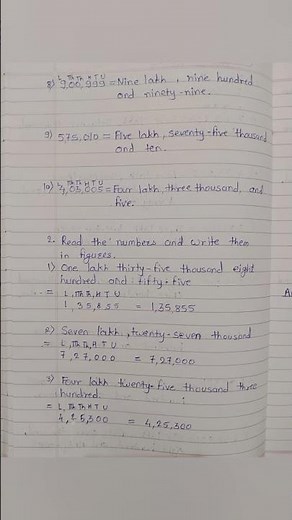 L, Th Th H T U
8) 900,999 = Nine lakh, nine hundred
and ninety-nine.
9) 575,010 = Five lakh, seventy-five thousand
and ten.
L Th Th H T U
10) 4,03,005 = Four lakh, three thousand, and
five.
2. Read the numbers and write them
in figures.
1) One lakh thirty-five thousand eight
hundred and fifty-five
= L, Th Th, H T U
1, 35, 855 = 1,35,855
2) Seven lakh, twenty-seven thousand
= L, Th Th, H T U
7,27,000 = 7,27,000
3) Four lakh twenty-five thousand three
hundred.
= L, Th Th H T U
4,25,300 = 4,25,300